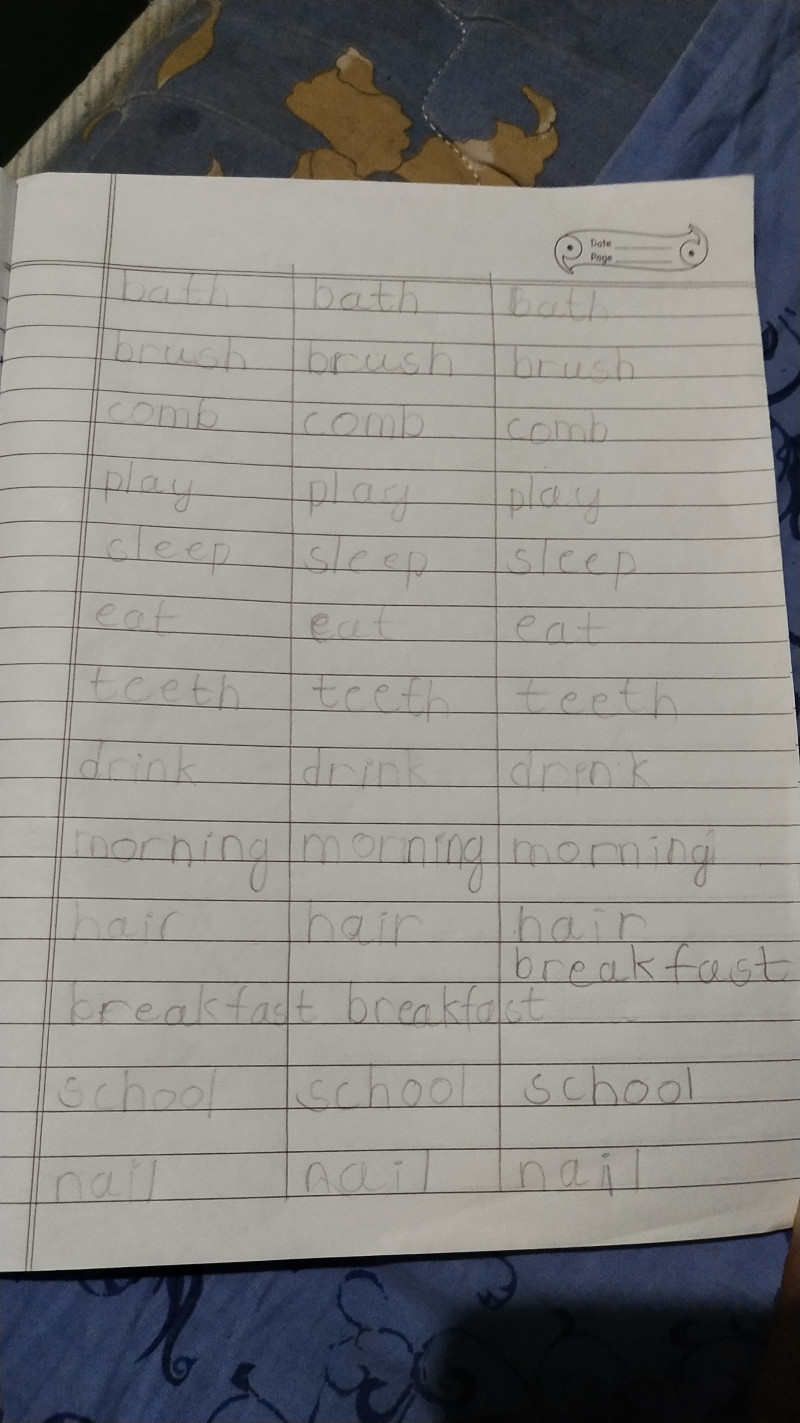 Date
Page
bath bath bath
brush brush brush
comb comb comb
play play play
sleep sleep sleep
eat eat eat
teeth teeth teeth
drink drink drink
morning morning morning
hair hair hair
breakfast
breakfast breakfast
school school school
nail nail nail